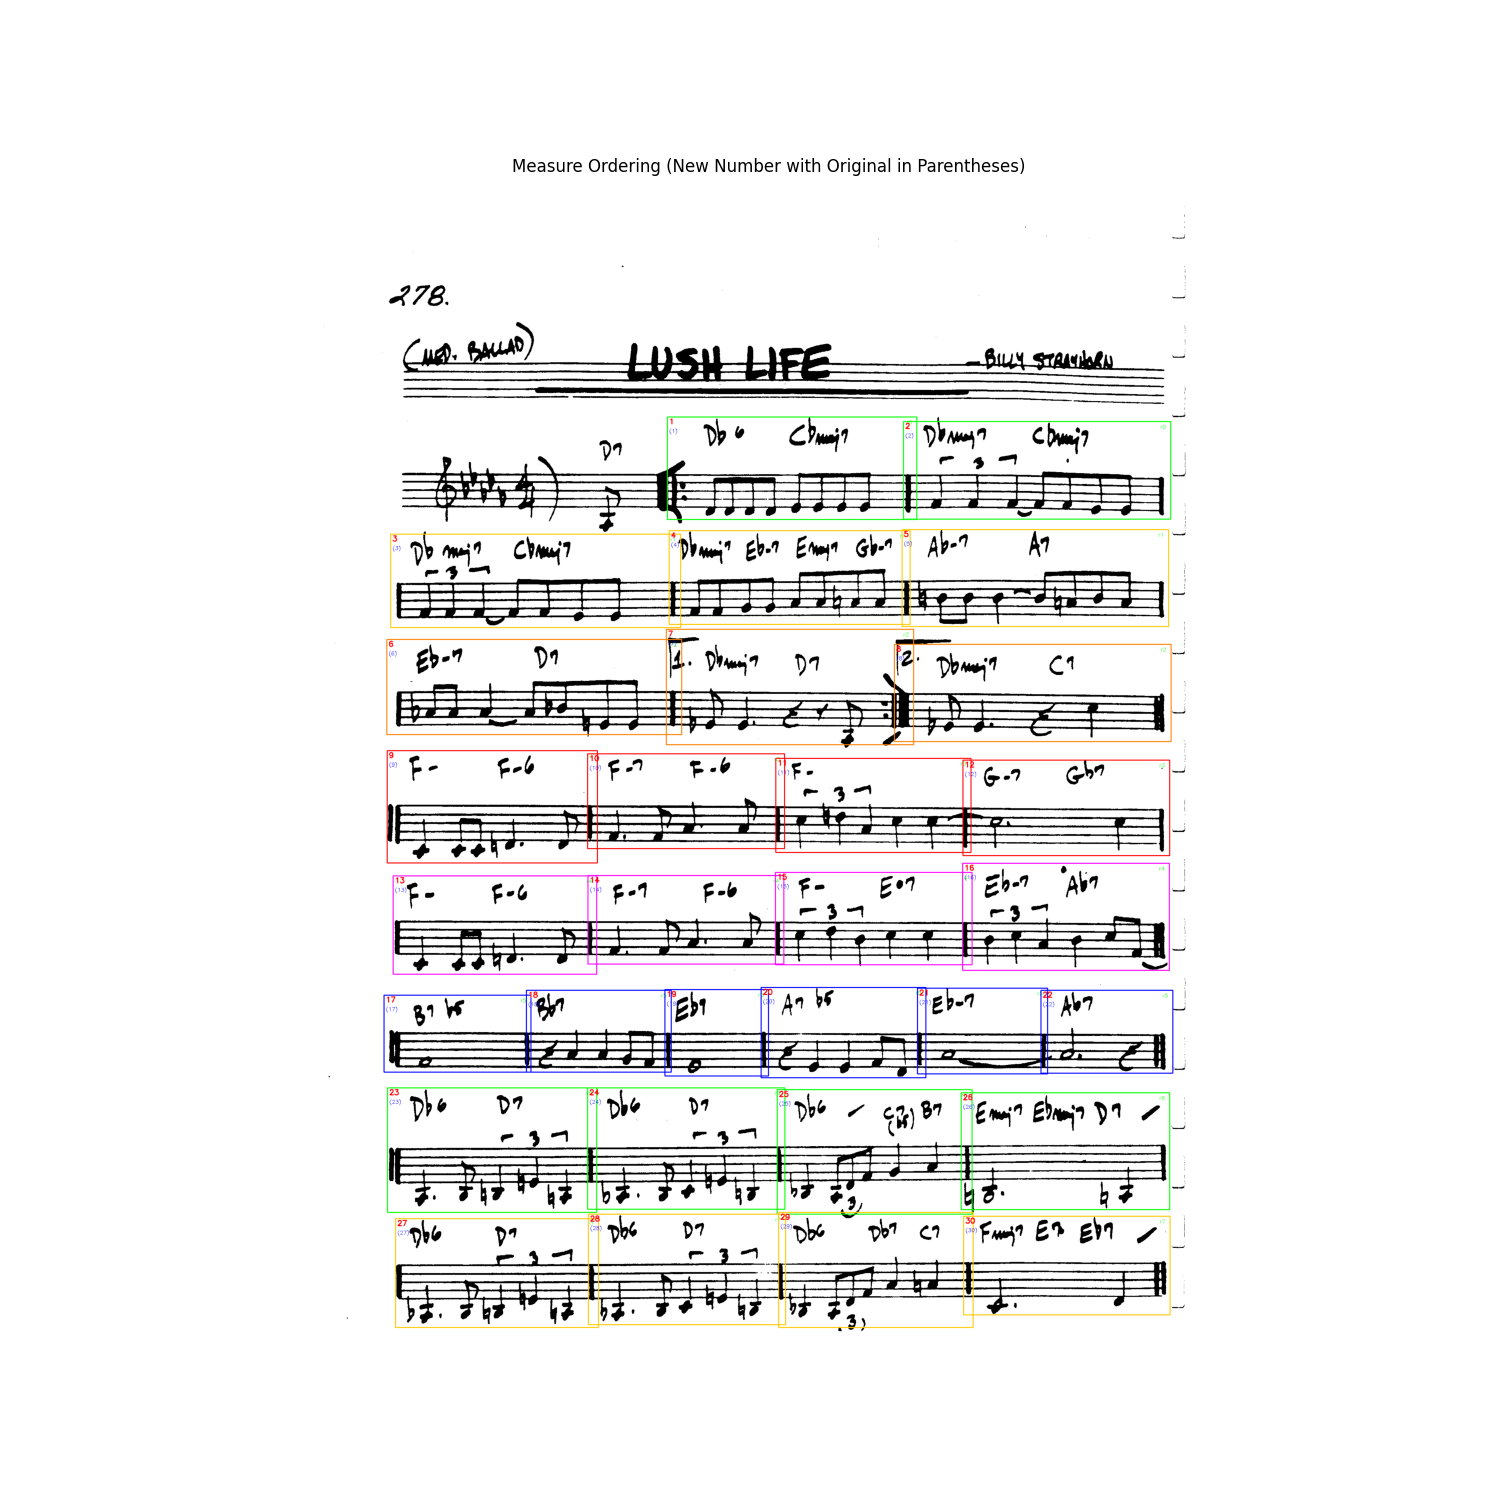 Measure Ordering (New Number with Original in Parentheses)
278.
(MED. BALLAD)
LUSH LIFE
- BILLY STRAYHORN
D7
1 (1) Db 6 Cbmaj7
2 (2) Dbmaj7 Cbmaj7
3 3
3 (3) Db maj7 Cbmaj7
4 Dbmaj7 Eb-7 Emaj7 Gb-7
5 (5) Ab-7 A7
3
6 (6) Eb-7 D7
7 1. Dbmaj7 D7
8 2. Dbmaj7 C7
9 (9) F- F-6
10 (10) F-7 F-6
11 (11) F-
12 (12) G-7 Gb7
3
13 (13) F- F-6
14 (14) F-7 F-6
15 (15) F- E°7
16 (16) Eb-7 Ab7
3 3
17 (17) B7 b5
18 Bb7
19 Eb7
20 (20) A7 b5
21 (21) Eb-7
22 (22) Ab7
23 (23) Db6 D7
24 (24) Db6 D7
25 (25) Db6 C7 (b5) B7
26 (26) Emaj7 Ebmaj7 D7
3 3 3
27 (27) Db6 D7
28 (28) Db6 D7
29 (29) Db6 Db7 C7
30 (30) Fmaj7 Eb7
3 3 (3)